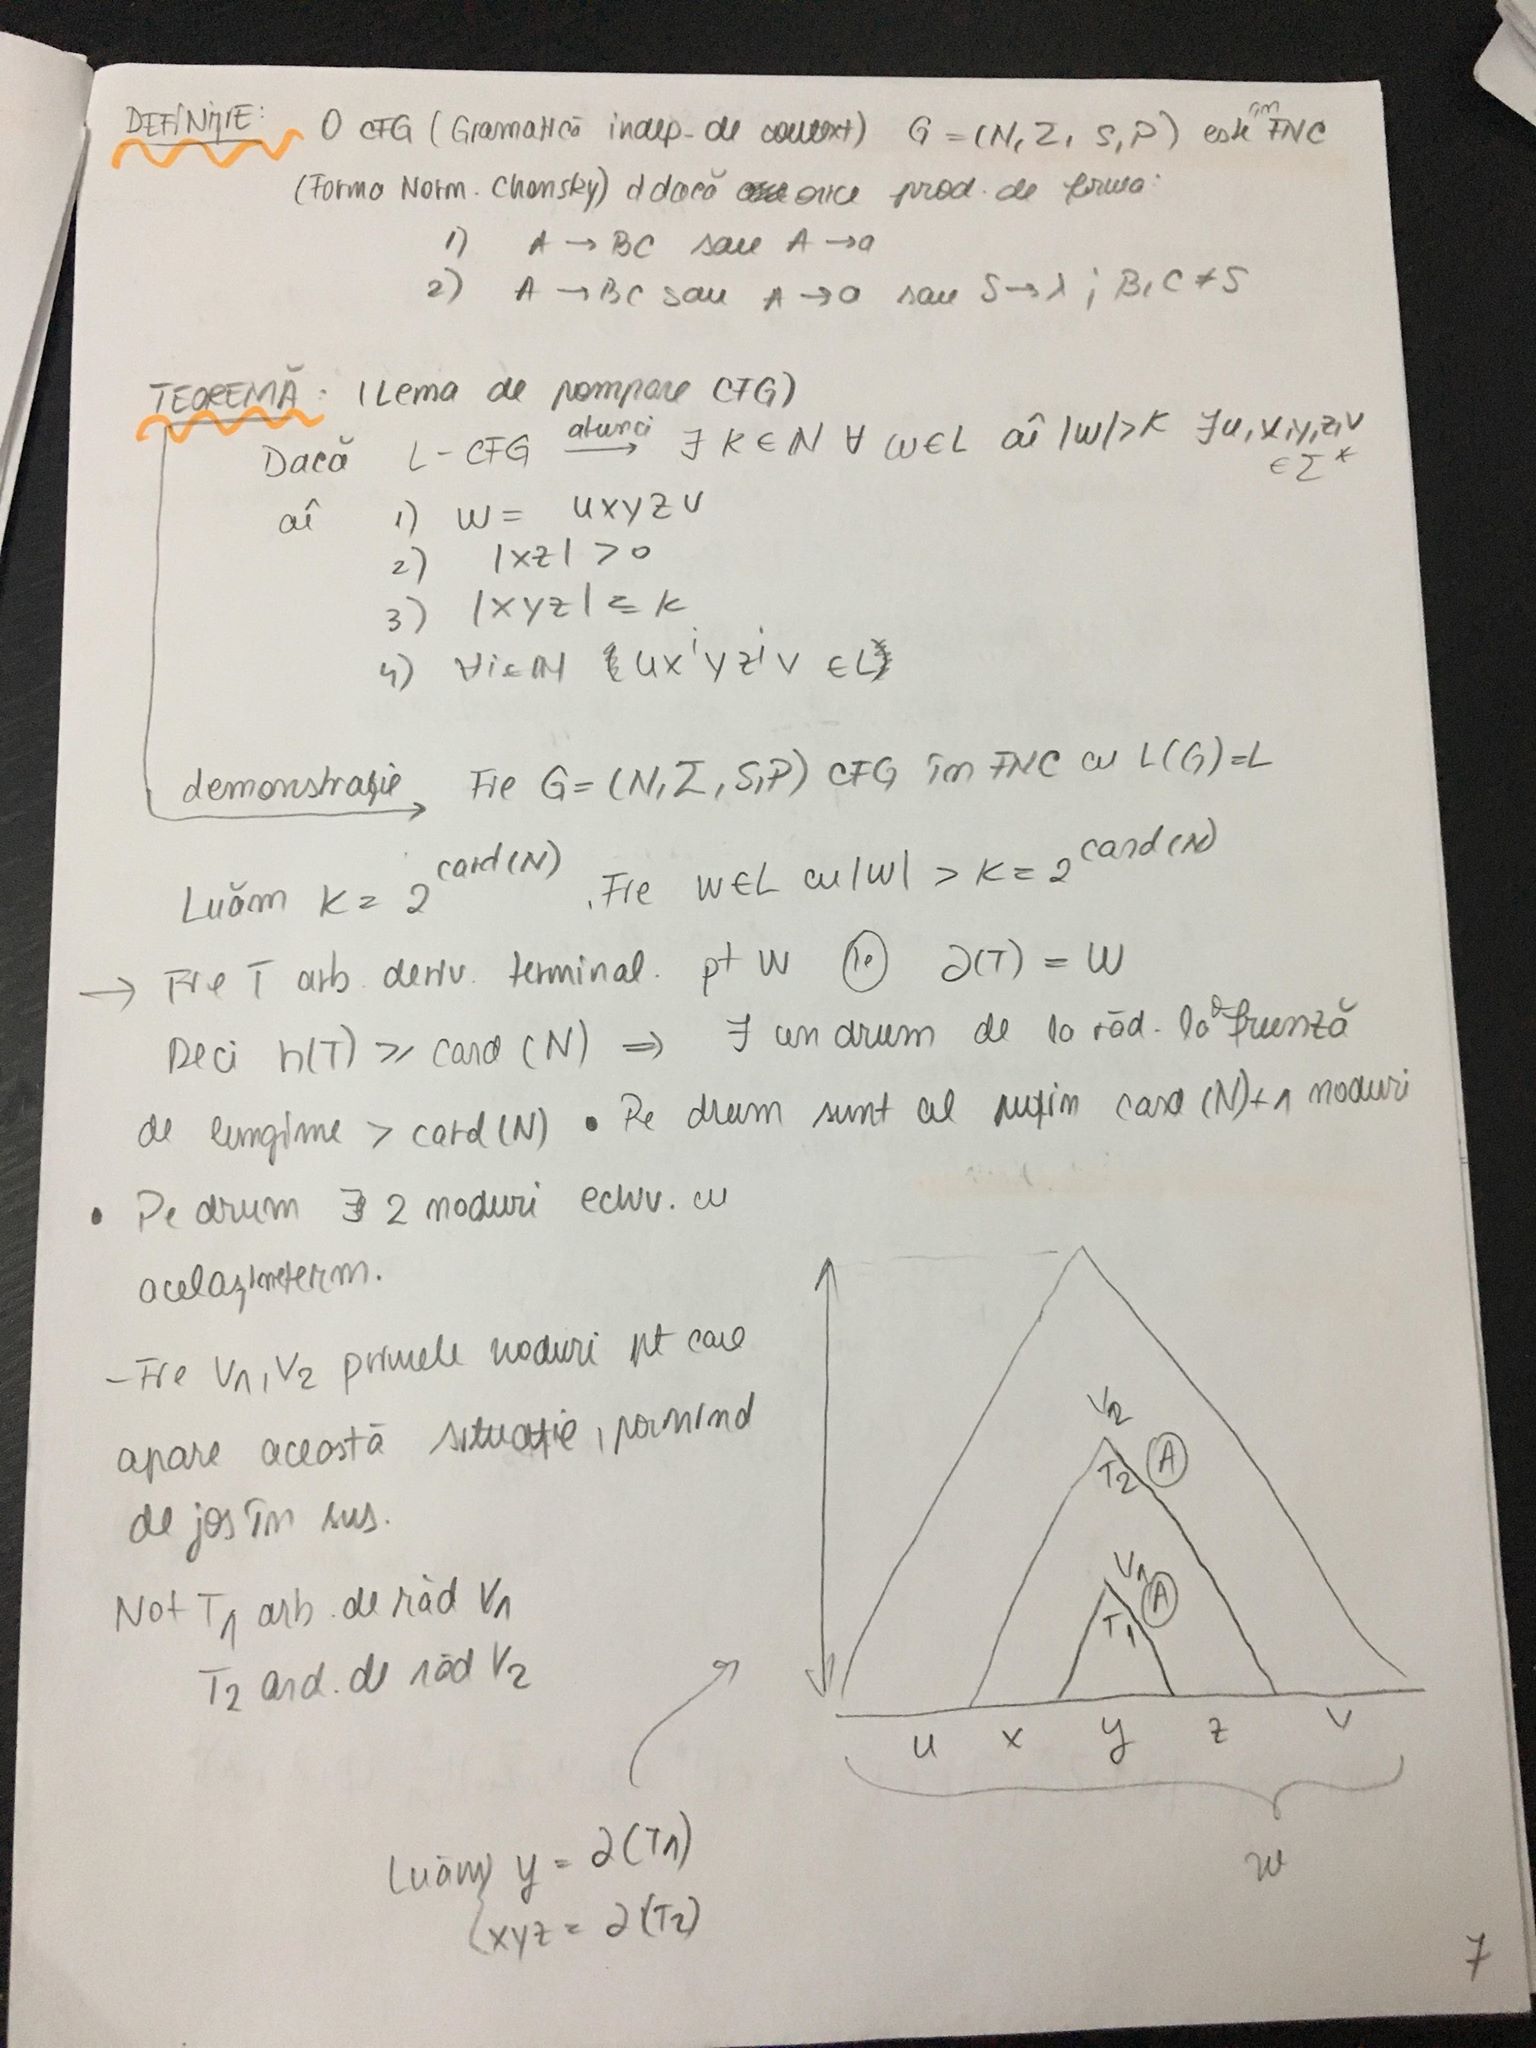 DEFINIȚIE: O CFG (Gramatică indep. de context) G = (N, Σ, S, P) este în FNC
(Forma Norm. Chomsky) d dacă orice prod. de forma:
1) A → BC sau A → a
2) A → BC sau A → a sau S → λ ; B, C ≠ S
TEOREMĂ: (Lema de pompare CFG)
Dacă L - CFG atunci → ∃ K ∈ N ∀ w ∈ L aî |w| > K ∃ u, x, y, z, v
∈ Σ*
aî 1) w = uxyzv
2) |xz| > 0
3) |xyz| ≤ K
4) ∀ i ∈ N { ux^i y z^i v ∈ L }
demonstrație Fie G = (N, Σ, S, P) CFG în FNC cu L(G) = L
Luăm K = 2^card(N). Fie w ∈ L cu |w| > K = 2^card(N)
→ Fie T arb. deriv. terminal. pt w ∂(T) = w
Deci h(T) ≥ card(N) ⇒ ∃ un drum de la răd. la o frunză
de lungime > card(N) • Pe drum sunt cel puțin card(N)+1 noduri
• Pe drum ∃ 2 noduri echiv. cu
același neterm.
- Fie V1, V2 primele noduri pt care
apare această situație, pornind
de jos în sus.
Not T1 arb. de răd V1
T2 ard. de răd V2
Luăm y = ∂(T1)
{ xyz = ∂(T2)
V2
T2 A
V1
T1 A
u x y z v
w
7